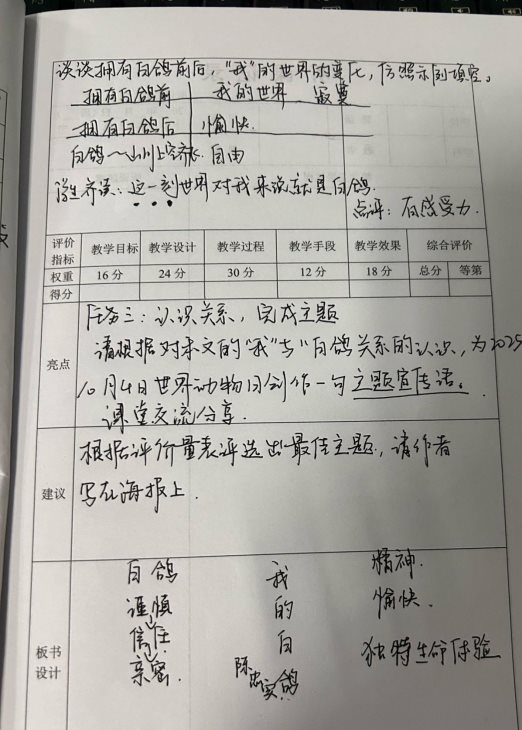 谈谈拥有白鸽前后，“我”的世界的变化，仿照示例填空。
拥有白鸽前 我的世界 寂寞
拥有白鸽后 愉快.
白鸽——山川上空齐飞. 自由
学生齐读：这一刻世界对我来说就是白鸽.
点评：有感受力.
评价指标 教学目标 教学设计 教学过程 教学手段 教学效果 综合评价
权重 16分 24分 30分 12分 18分 总分 等第
得分
亮点
任务三：认识关系，完成主题
请根据对本文的“我”与“白鸽关系的认识，为2025
10月4日世界动物日创作一句主题宣传语。
课堂交流分享.
建议
根据评价量表评选出最佳主题，请作者
写在海报上.
板书设计
白鸽
谨慎
信任
亲密.
我的白鸽
陈忠实
精神.
愉快.
独特生命体验